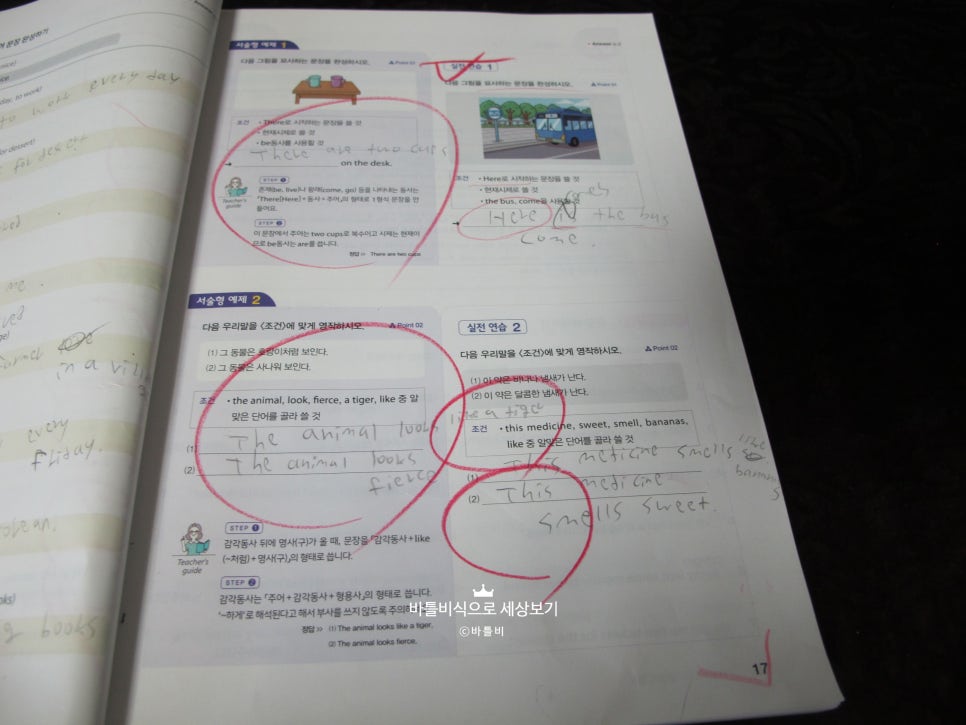 어 문장 완성하기
every day
day, to work)
for dessert)
서술형 예제 1
다음 그림을 묘사하는 문장을 완성하시오.
Point 01
조건
• There로 시작하는 문장을 쓸 것
• 현재시제로 쓸 것
• be동사를 사용할 것
There are two cups
→ on the desk.
Teacher's guide
STEP 1
존재(be, live)나 왕래(come, go) 등을 나타내는 동사는
「There[Here] + 동사 + 주어」의 형태로 1형식 문장을 만
들어요.
STEP 2
이 문장에서 주어는 two cups로 복수이고 시제는 현재이
므로 be동사는 are를 씁니다.
정답 >> There are two cups
Answer
실전 연습 1
다음 그림을 묘사하는 문장을 완성하시오.
Point 01
조건
• Here로 시작하는 문장을 쓸 것
• 현재시제로 쓸 것
• the bus, come을 사용할 것
→ Here the bus
come.
서술형 예제 2
다음 우리말을 〈조건〉에 맞게 영작하시오.
Point 02
(1) 그 동물은 호랑이처럼 보인다.
(2) 그 동물은 사나워 보인다.
조건
• the animal, look, fierce, a tiger, like 중 알
맞은 단어를 골라 쓸 것
(1) The animal looks like a tiger
(2) The animal looks
fierce
Teacher's guide
STEP 1
감각동사 뒤에 명사(구)가 올 때, 문장을 「감각동사 + like
(~처럼) + 명사(구)」의 형태로 씁니다.
STEP 2
감각동사는 「주어 + 감각동사 + 형용사」의 형태로 씁니다.
'~하게'로 해석된다고 해서 부사를 쓰지 않도록 주의
정답 >> (1) The animal looks like a tiger.
(2) The animal looks fierce.
실전 연습 2
다음 우리말을 〈조건〉에 맞게 영작하시오.
Point 02
(1) 이 약은 바나나 냄새가 난다.
(2) 이 약은 달콤한 냄새가 난다.
조건
• this medicine, sweet, smell, bananas,
like 중 알맞은 단어를 골라 쓸 것
(1) This meticine smells like
(2) This meticine
smells sweet.
in a
every
friday.
books
바틀비식으로 세상보기
©바틀비
17